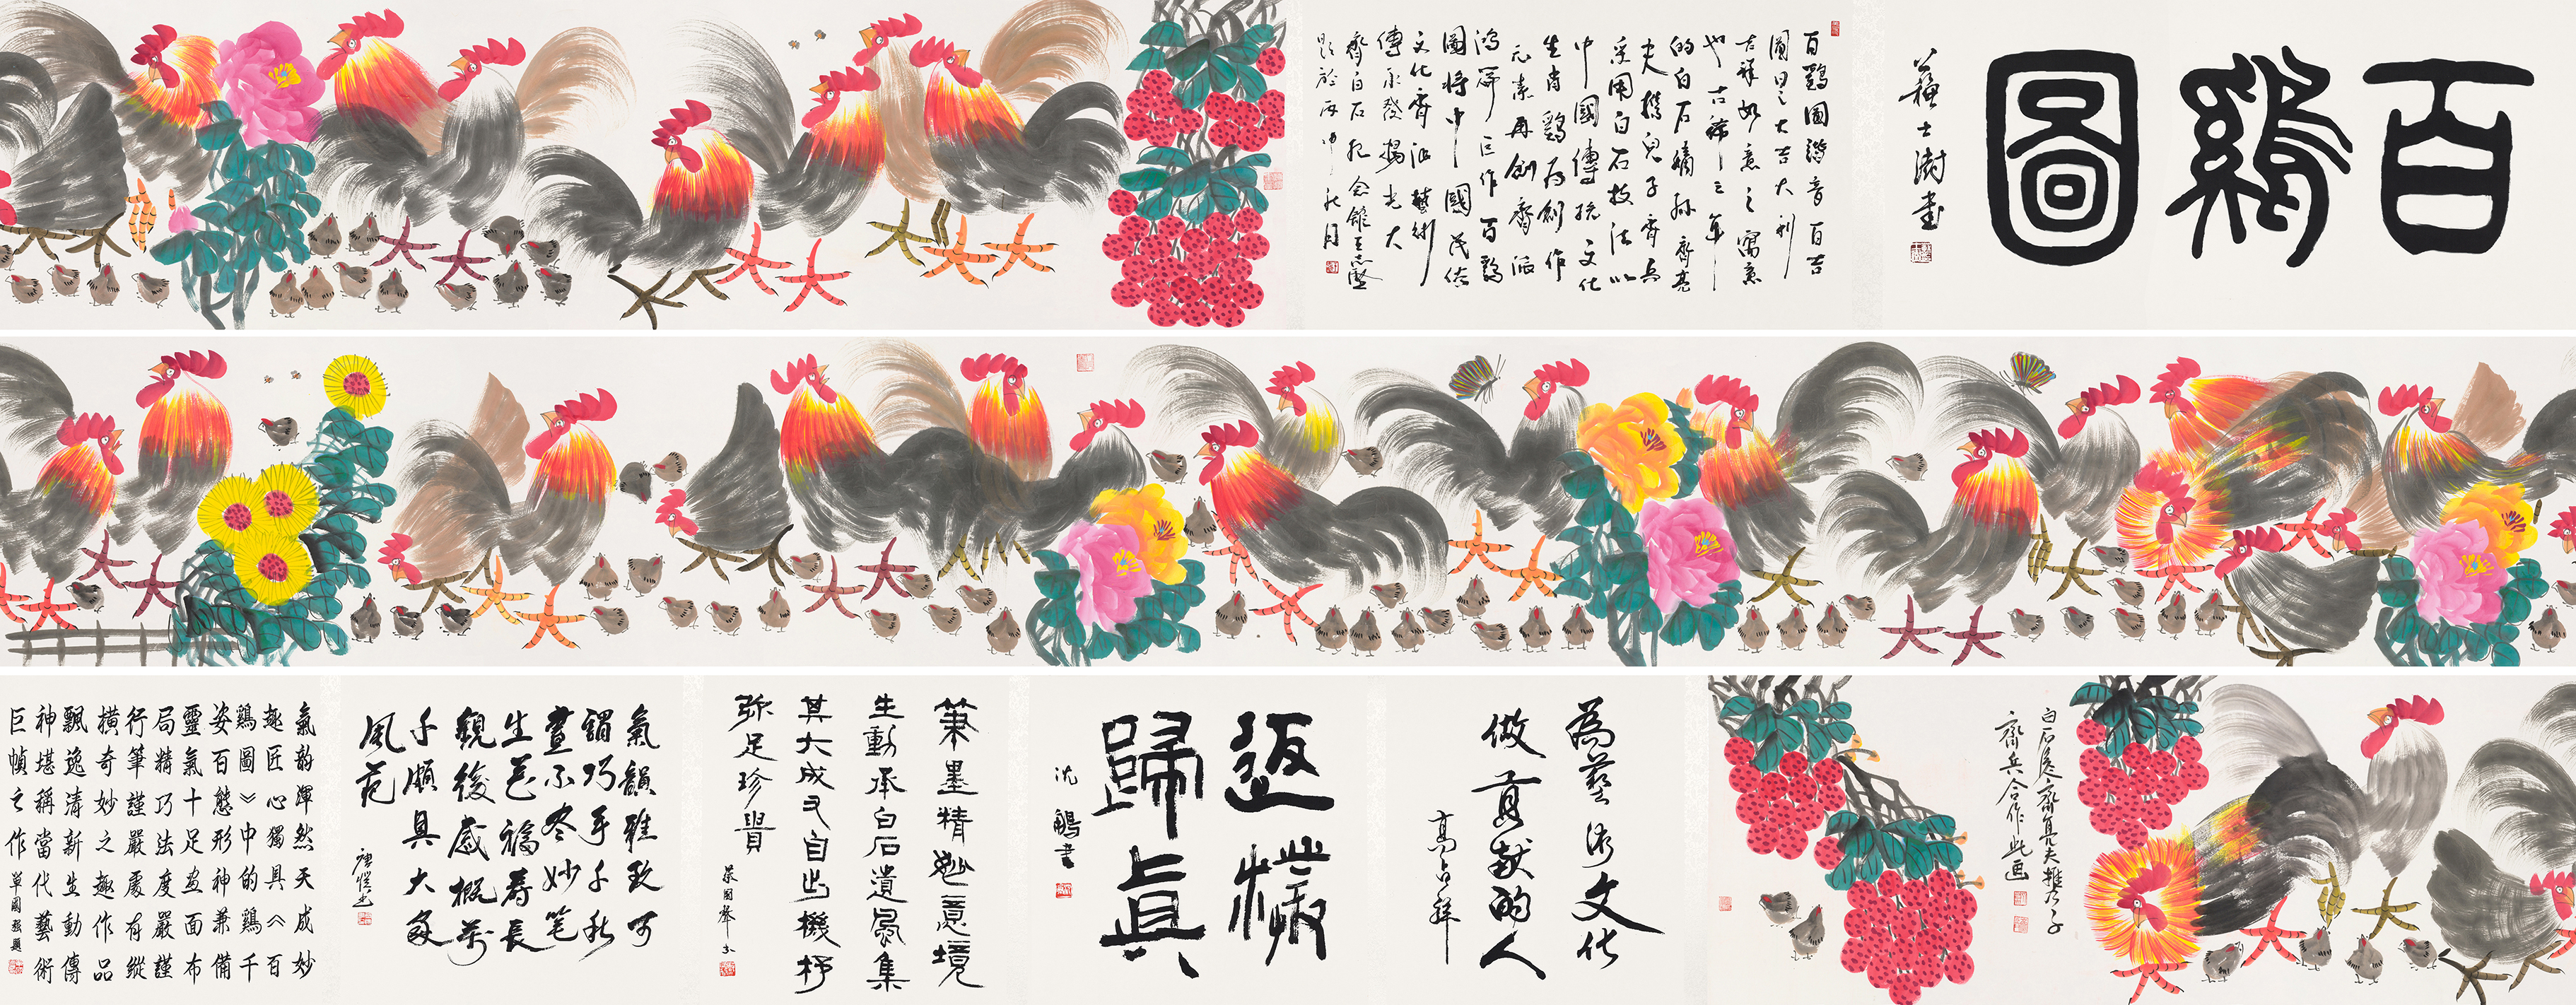 百鷄圖
蘇士澍書
百鷄圖諧音百吉
圖日之大吉大利
吉祥如意之寓意
也古稀之年
的白石嫡孫齊亮
夫携兒子齊兵
采用白石技法以
中國傳統文化
生肖鷄為創作
元素再創齊派
鴻篇巨作百鷄
圖將中國民俗
文化齊派藝術
傳承發揚光大
齊白石紀念館王志堅
題於丙申秋月
白石后裔齊亮夫携乃子
齊兵合作此画
為藝術文化
做貢獻的人
高占祥
返樸
歸真
沈鵬書
筆墨精妙意境
生動承白石遺風集
其大成又自出機杼
弥足珍貴
氣韻雅致可
謂巧手千秋
畫不盡妙笔
生花福壽長
觀後感概万
千頗具大家
風范
氣韵渾然天成妙
趣匠心獨具《百
鷄圖》中的鷄千
姿百態形神兼備
靈氣十足画面布
局精巧法度嚴謹
行筆謹嚴處有縱
橫奇妙之趣作品
飄逸清新生動傳
神堪稱當代藝術
巨幀之作 單國强題